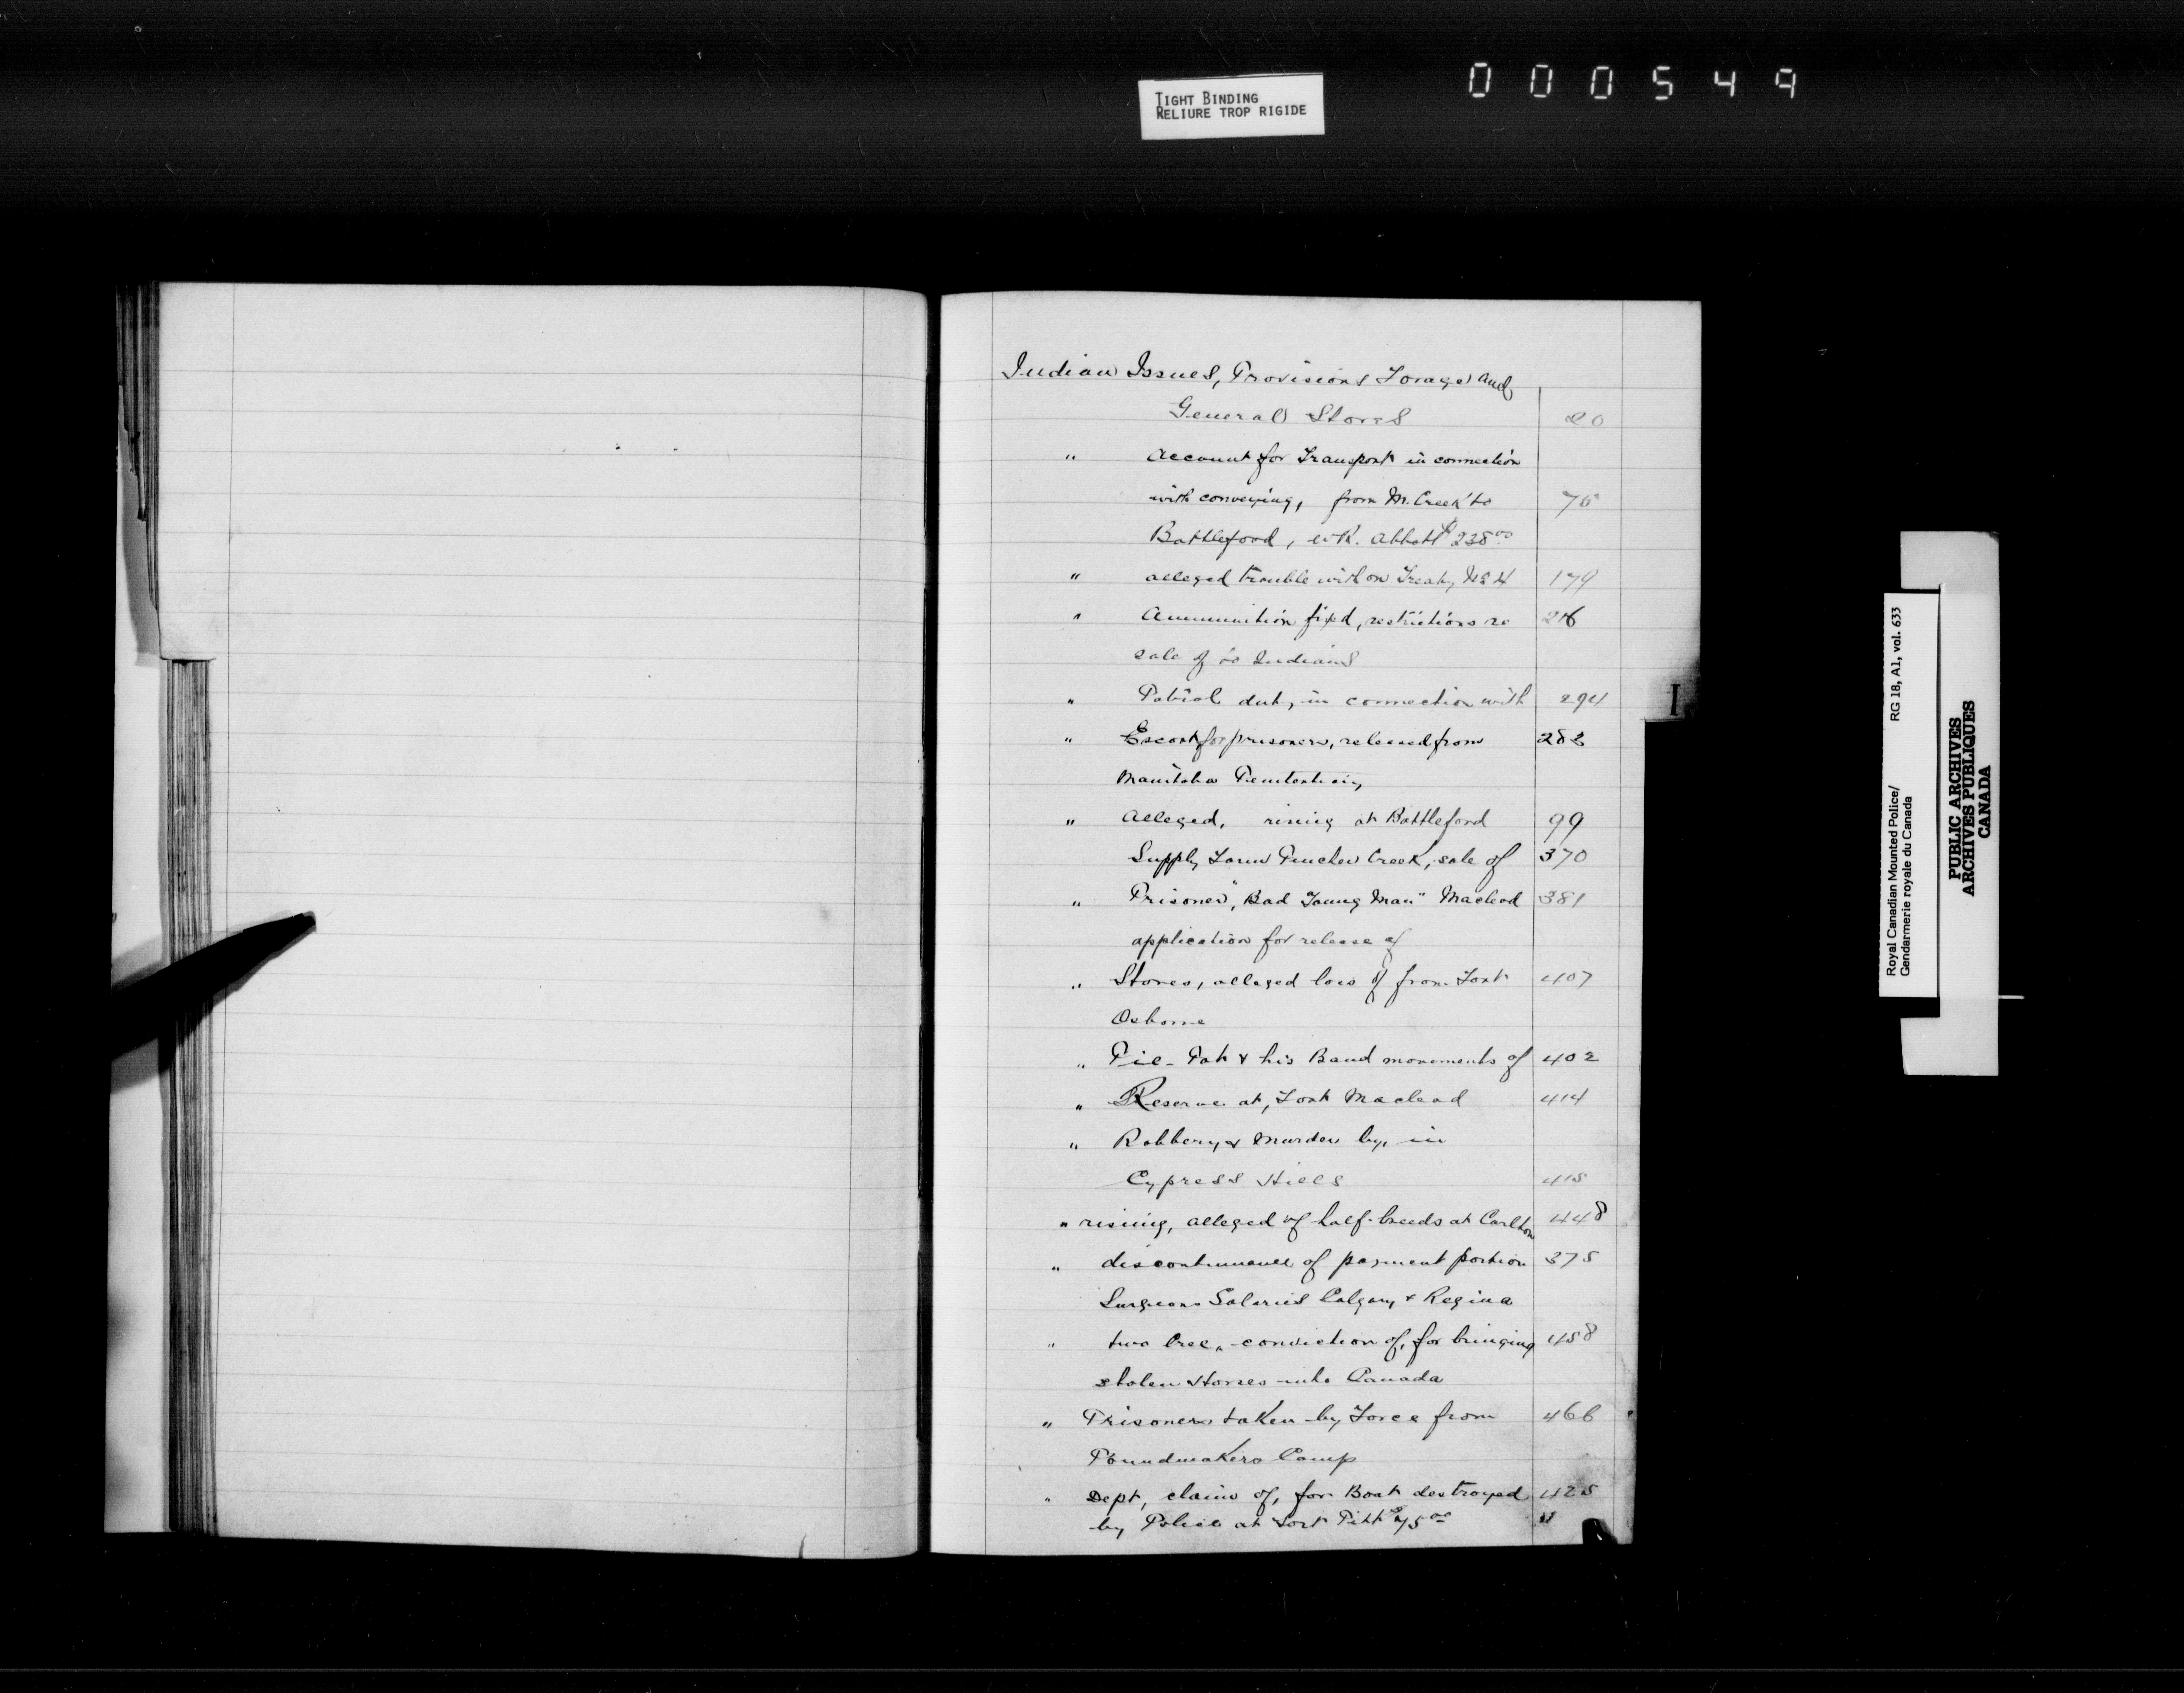 TIGHT BINDING
RELIURE TROP RIGIDE
000549
Indian Issues, Provisions Forage and
General Stores 20
" Account for Transport in connection
with conveying, from M. Creek to 76
Battleford, W.R. Abbott $238.00
" alleged trouble with on Treaty No 4 179
" Ammunition fixed, restrictions re 216
sale of to Indians
" Patrol duty in connection with 294
" Escort for prisoners, released from 282
Manitoba Penitentiary
" Alleged, rising at Battleford 99
Supply Farm Pincher Creek, sale of 370
" Prisoner, "Bad Young Man" Macleod 381
application for release of
" Stores, alleged loss of from Fort 407
Osborne
" Pie-Pot & his Band movements of 402
" Reserve at, Fort Macleod 414
" Robbery, & Murder by, in
Cypress Hills 415
" rising, alleged of half-breeds at Carlton 448
" discontinuance of payment portion 375
Surgeons Salaries Calgary & Regina
" two Cree, conviction of, for bringing 458
stolen Horses into Canada
" Prisoners taken by Force from 466
Poundmakers Camp
" Dept, claim of, for Boat destroyed 425
by Police at Fort Pitt $75.00
I
Royal Canadian Mounted Police/ RG 18, A1, vol. 633
Gendarmerie royale du Canada
PUBLIC ARCHIVES
ARCHIVES PUBLIQUES
CANADA